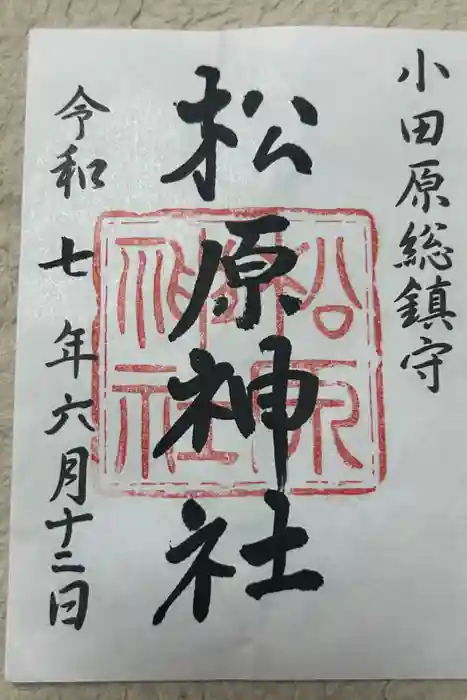 小田原総鎮守
松原神社
松原神社
令和七年六月十二日